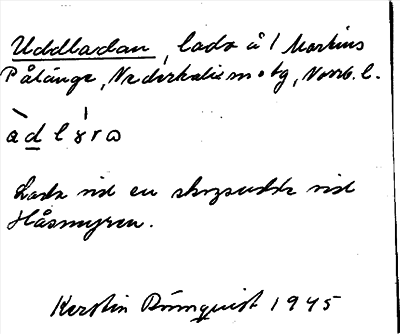 Uddladan, lada å / Martins
Pålänge, Nederkalix m o tg, Norrb. l.
Lada vid en skogsudde vid
Håsmyren.
Kerstin Rönnquist 1945